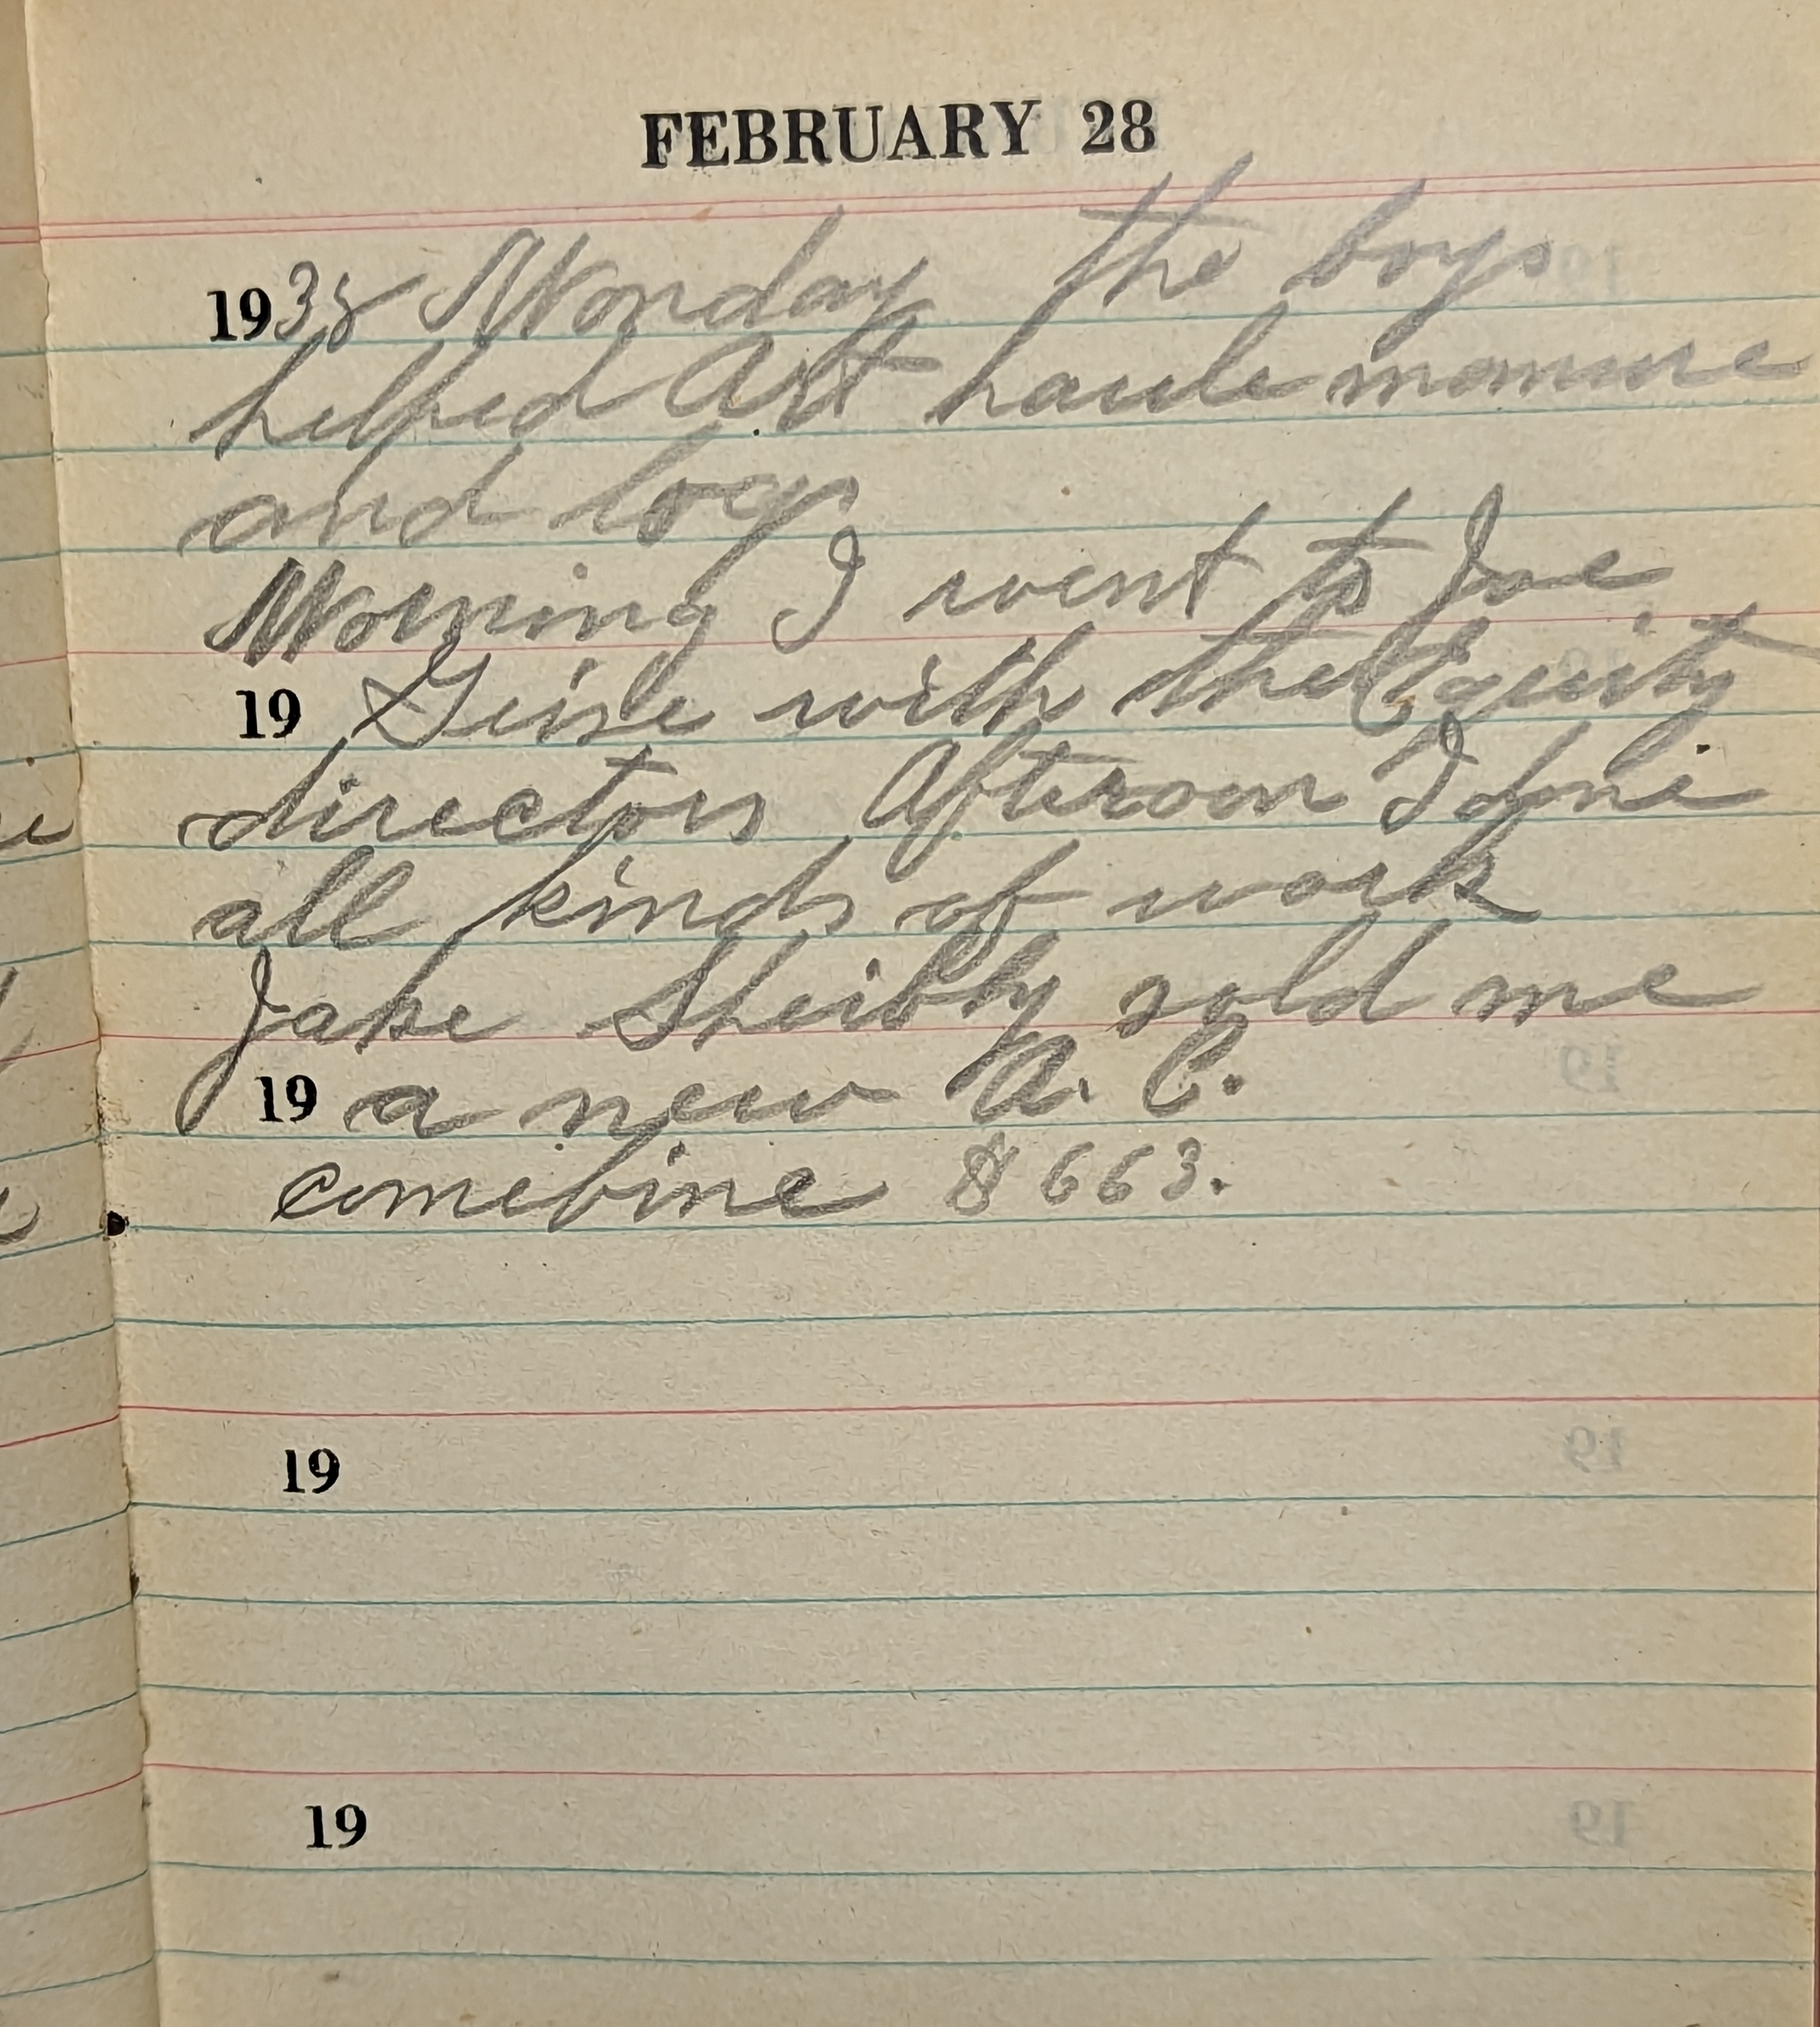 FEBRUARY 28
1938 Monday the boys
helped Art haule manure
and logs
Morning I went to Joe
19 Geise with the Equity
directors Afteroon I done
all kinds of work
Jake Sheibly sold me
19 a new A. C.
comebine $663.
19
19